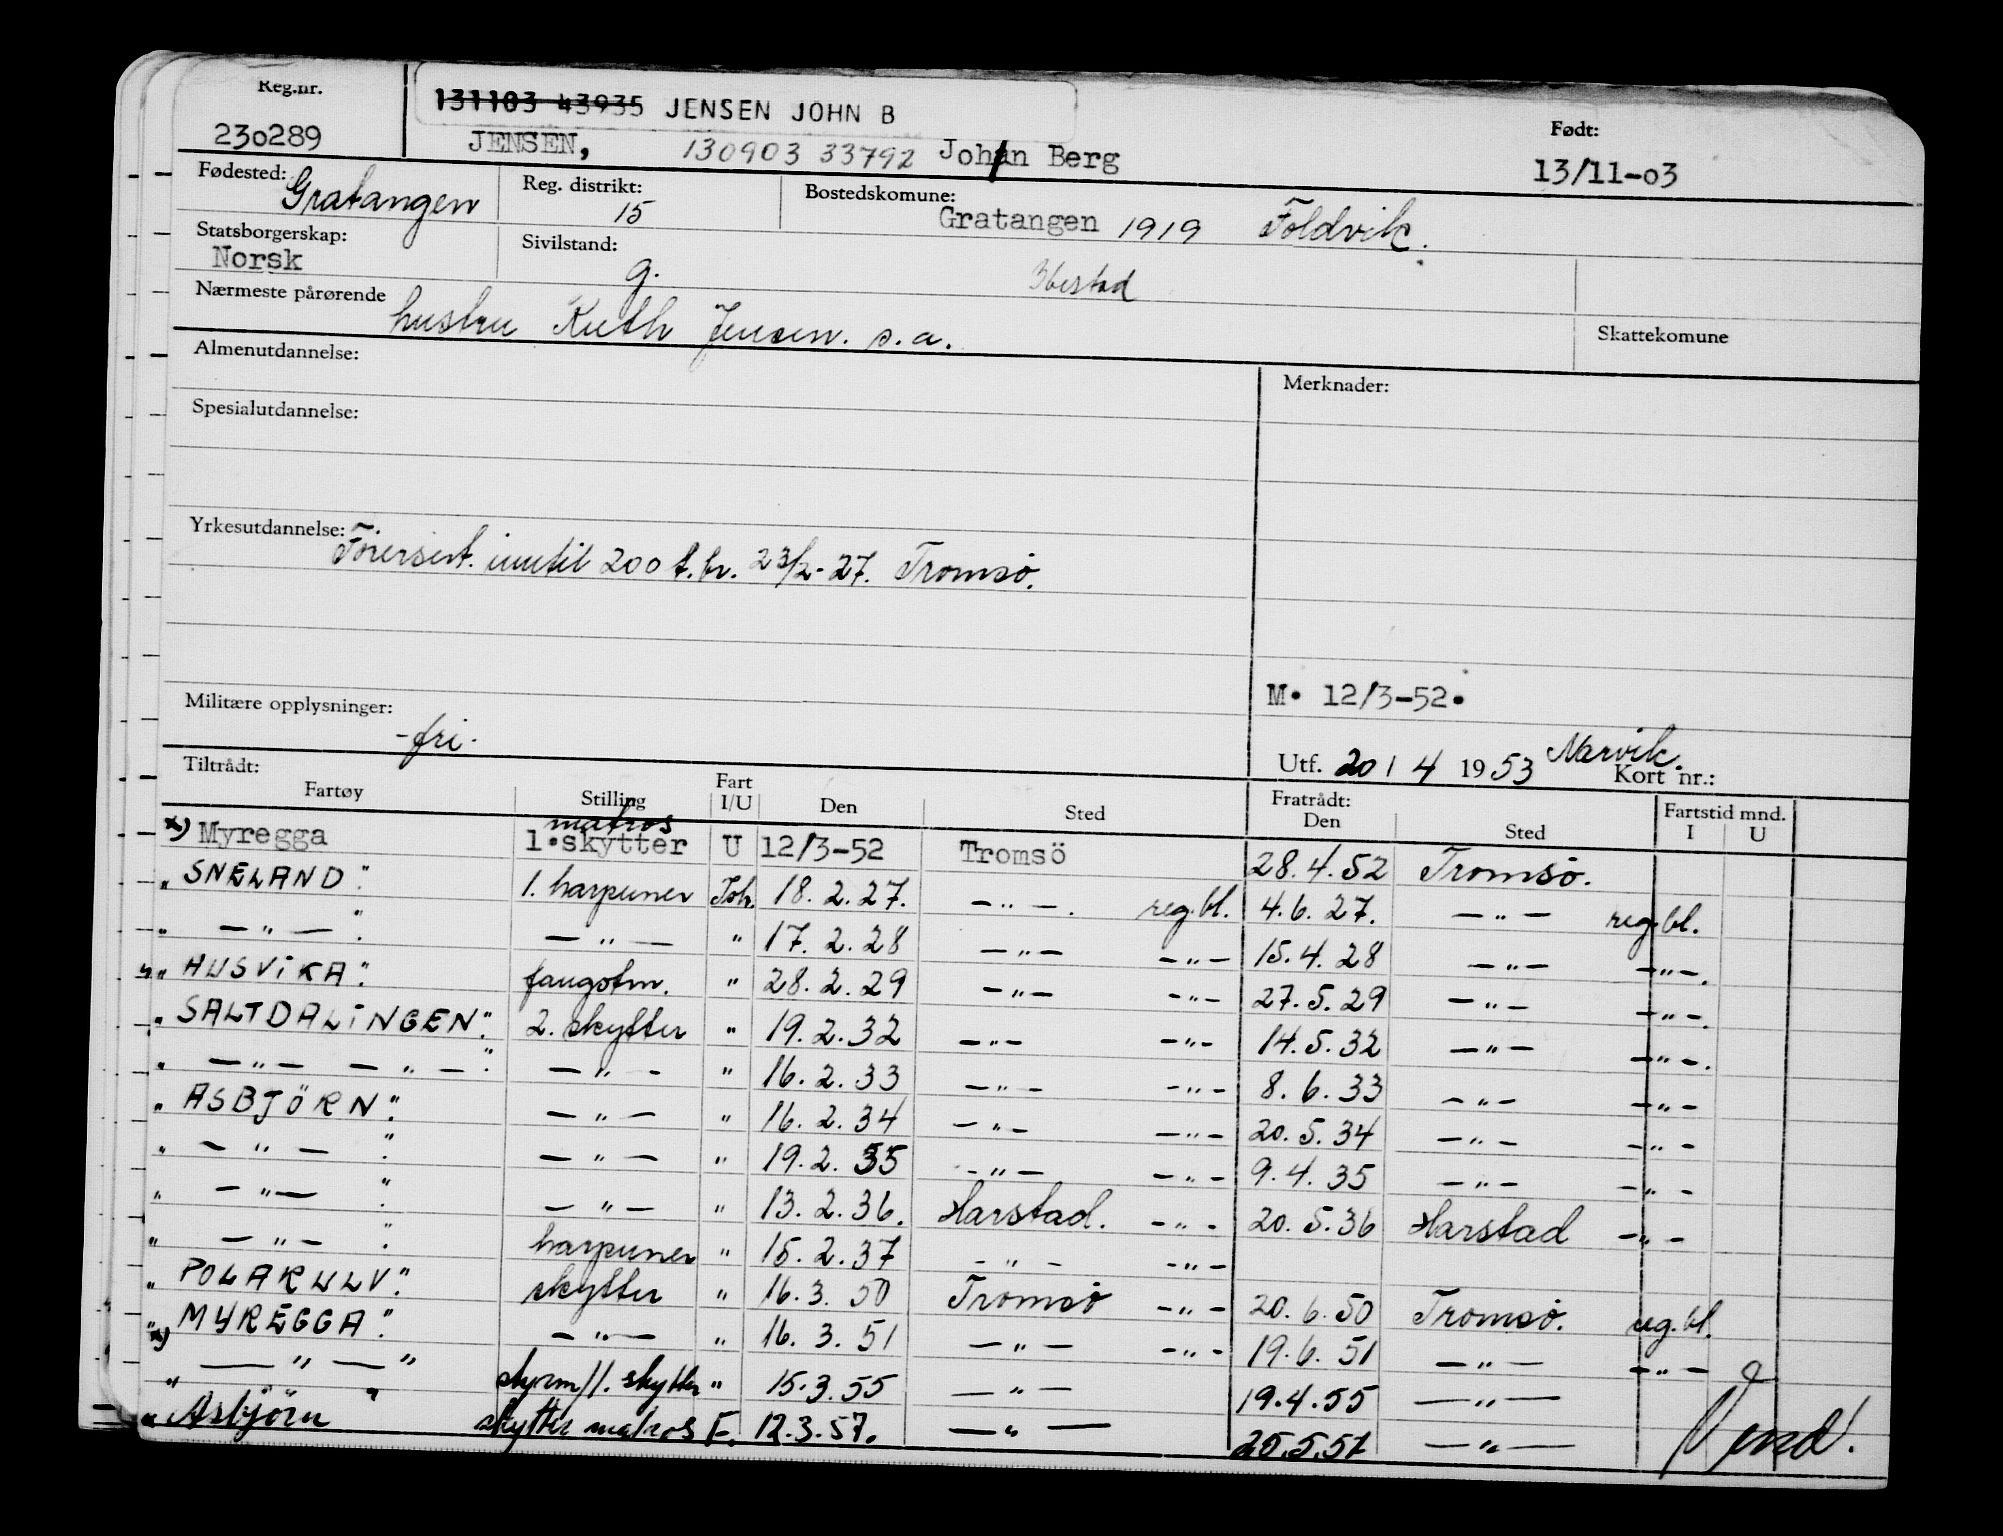 Reg.nr.
131103 43935 JENSEN JOHN B
230289 JENSEN, 130903 33792 Johan Berg
Født:
13/11-03
Fødested: Gratangen Reg. distrikt: 15 Bostedskomune: Gratangen 1919 Foldvik.
Statsborgerskap: Norsk Sivilstand: g. Ibestad
Nærmeste pårørende hustru Ruth Jensen. s.a.
Skattekomune
Almenutdannelse:
Merknader:
Spesialutdannelse:
Yrkesutdannelse: inntil 200 t.br. 23/2-27. Tromsö.
M. 12/3-52.
Militære opplysninger: -fri-
Utf. 20/4 1953 Narvik. Kort nr.:
Tiltrådt: Fratrådt: Fartstid mnd.
Fartøy Stilling Fart I/U Den Sted Den Sted I U
x) Myregga matros 1.skytter U 12/3-52 Tromsö 28.4.52 Tromsö.
" SNELAND". 1. harpuner Ish. 18.2.27. -"-. reg.bl. 4.6.27. -"- reg.bl.
" -"- ". -"- " 17.2.28 -"- -"- 15.4.28 -"- -"-.
" HUSVIKA". fangstm. " 28.2.29 -"- -"- 27.5.29 -"- -"-.
" SALTDALINGEN". 2. skytter " 19.2.32 -"- -"- 14.5.32 -"- -"-.
" -"- -"-". -"- " 16.2.33 -"- -"- 8.6.33 -"- -"-
" ASBJÖRN". -"- " 16.2.34 -"- -"- 20.5.34 -"- -"-
" -"- ". -"- " 19.2.35 -"- -"- 9.4.35 -"- -"-
" -"- ". -"- " 13.2.36. Harstad. -"- 20.5.36 Harstad -"-
" -"- ". harpuner " 15.2.37 -"- -"-
" POLARULV". skytter " 16.3.50 Tromsö -"- 20.6.50 Tromsö. reg.bl.
" MYREGGA". -"- " 16.3.51 -"- -"- 19.6.51 -"- -"-
x) -"-" styrm/1. skytter " 15.3.55 -"- 19.4.55 -"-
" Asbjörn " skytter matros F. 12.3.57. -"- 25.5.57 -"-
Vend!